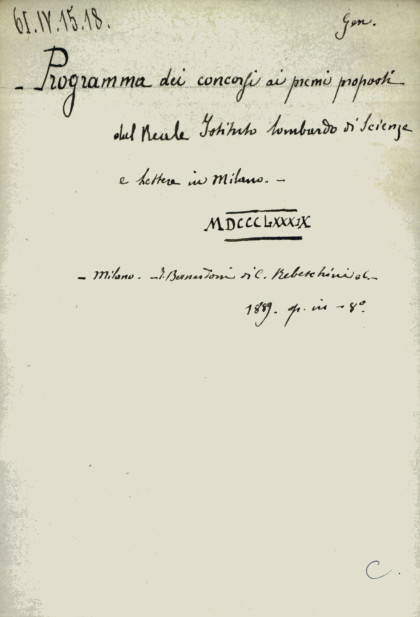 61.IV.15.18.
Gen.
- Programma dei concorsi ai premi proposti
dal Reale Istituto lombardo di Scienze
e lettere in Milano. -
MDCCCLXXXIX
- Milano. - T. Bernardoni di C. Rebeschini e C.
1889. op. in - 8º.
C.